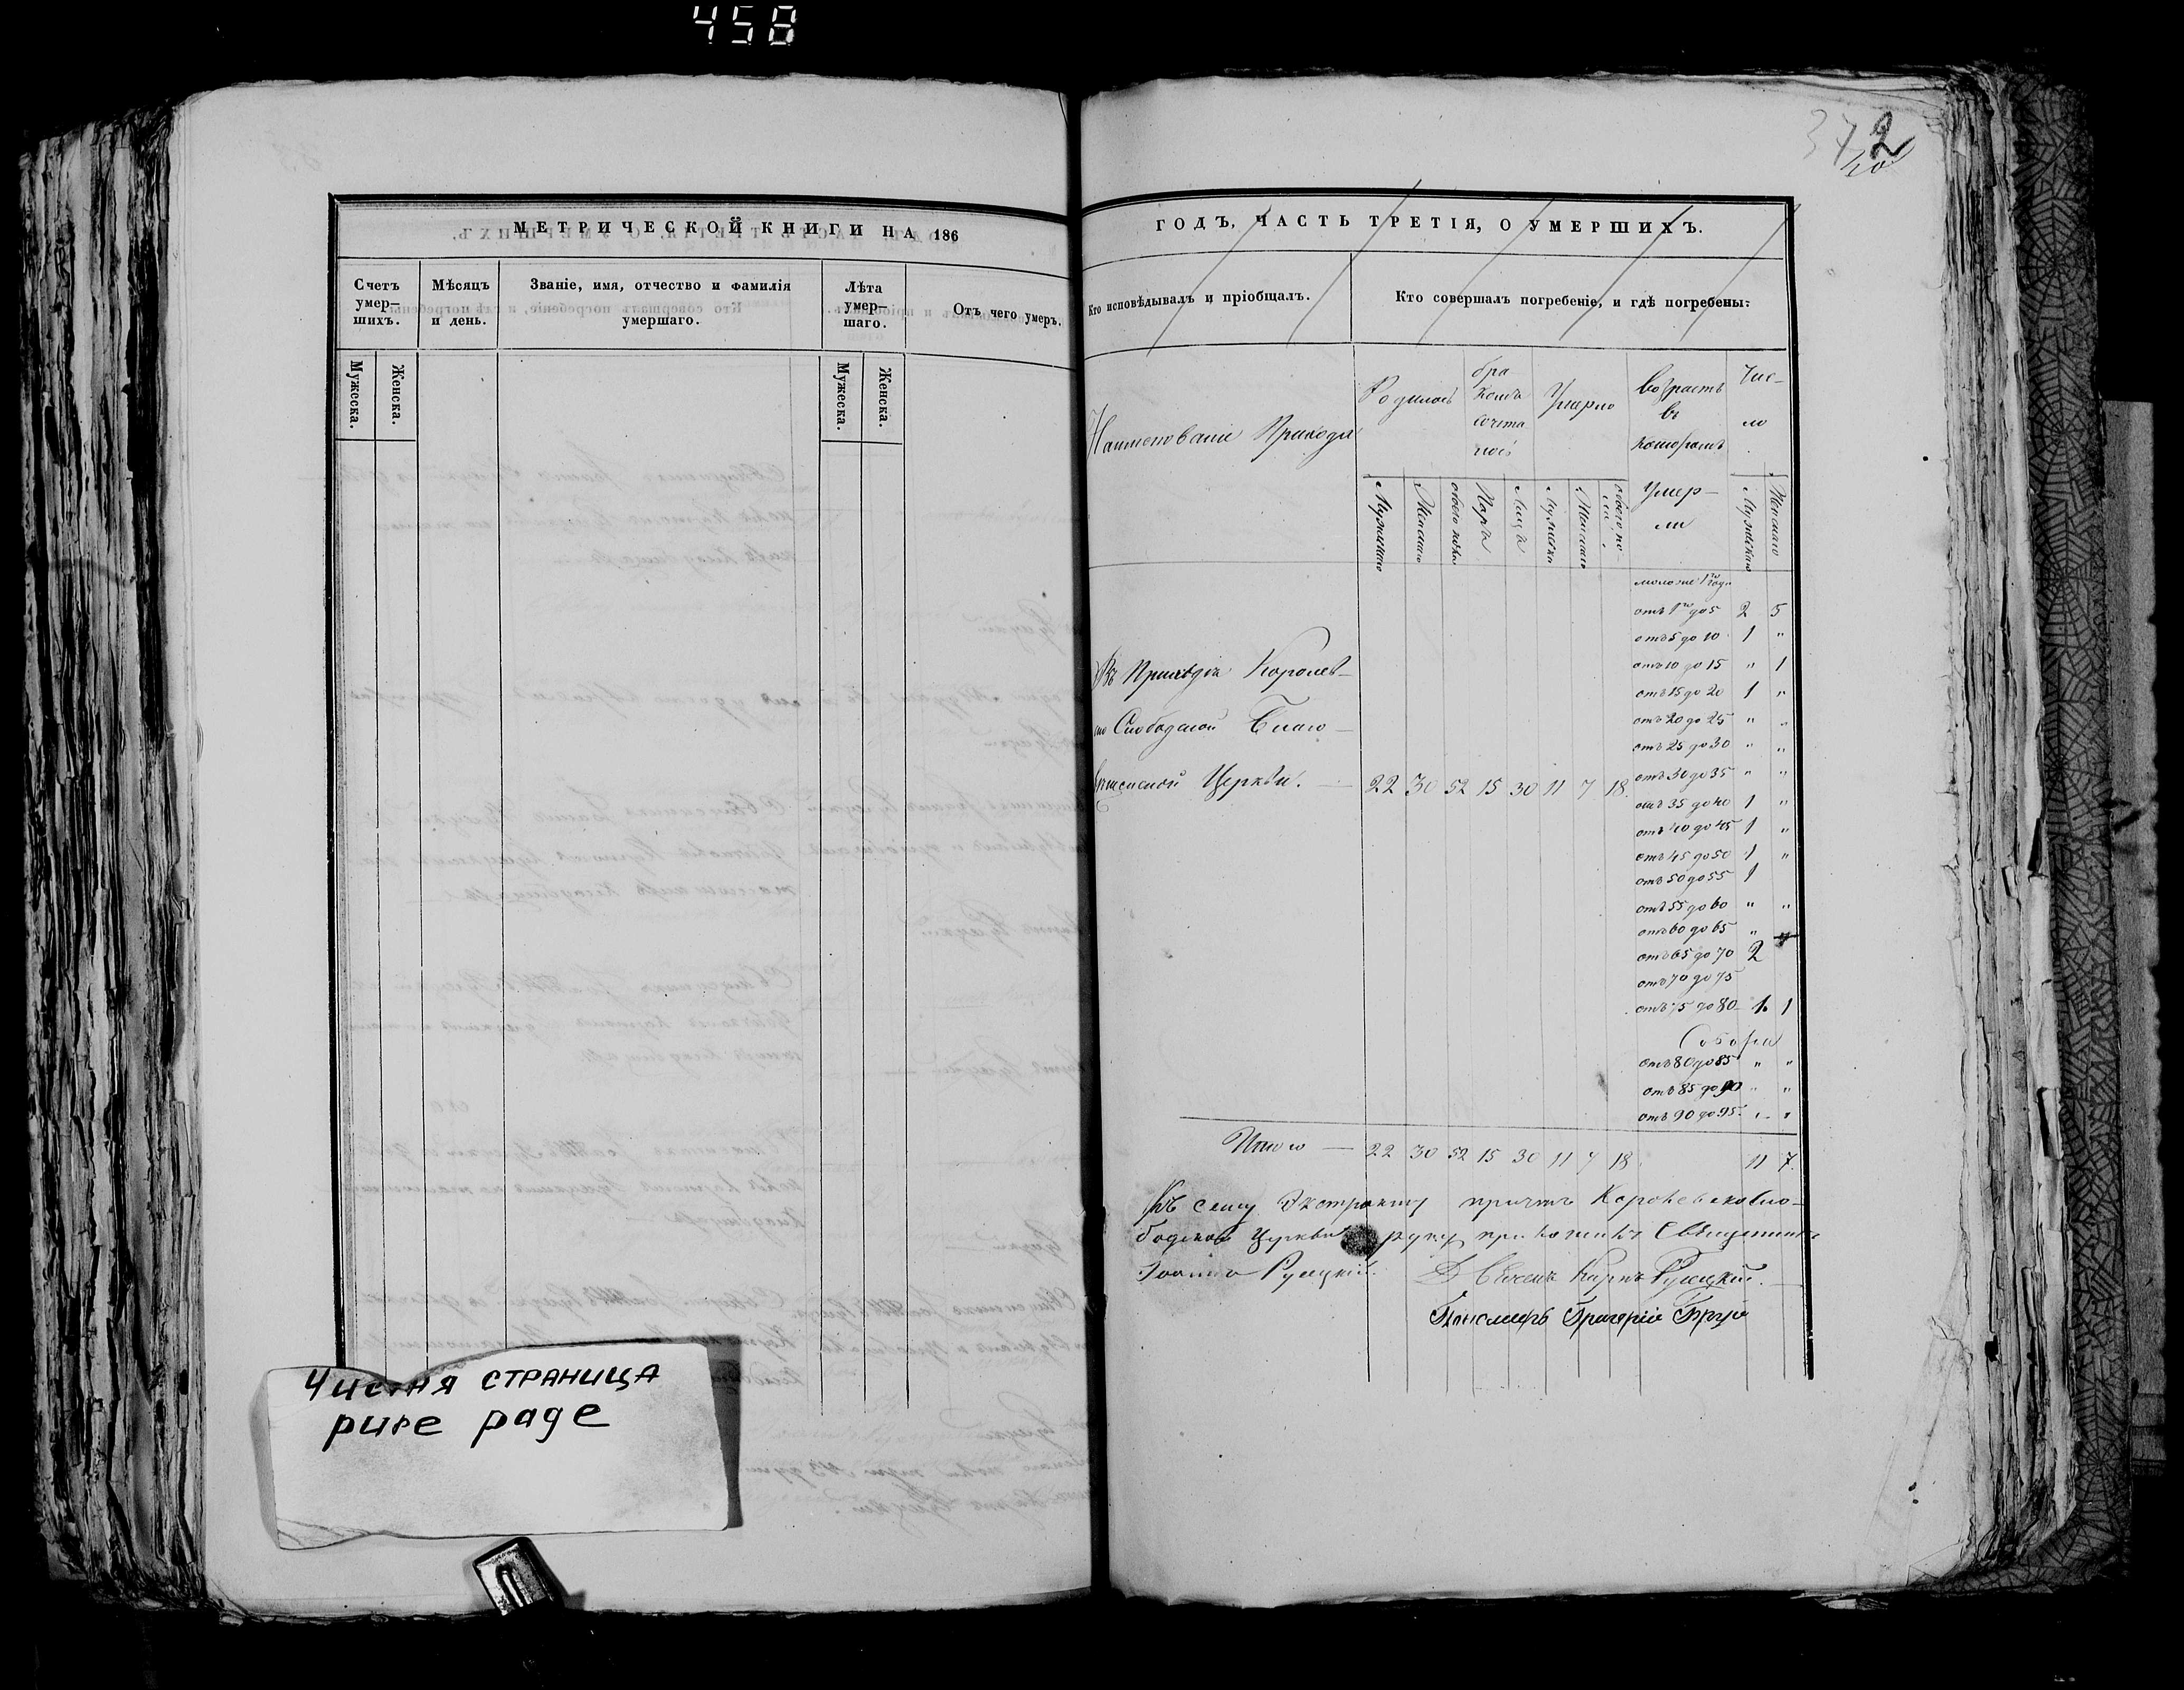 458
МЕТРИЧЕСКОЙ КНИГИ НА 186
Счетъ умер–шихъ.
Мѣсяцъ и день.
Званіе, имя, отчество и фамилія умершаго.
Лѣта умер–шаго.
Отъ чего умеръ.
Мужеска.
Женска.
Мужеска.
Женска.
Чистая страница
pure page
372
ГОДЪ, ЧАСТЬ ТРЕТІЯ, О УМЕРШИХЪ.
Кто исповѣдывалъ и пріобщалъ.
Кто совершалъ погребеніе, и гдѣ погребены:
Наименованіе Прихода
Родилось
Умерло
Возрастъ въ которомъ Умер–ли
Чис–ло
Мужескаго
Женскаго
обоего пола
Паръ
Лицъ
Мужеска
Женскаго
обоего по–ла
Мужескаго
Женскаго
моложе 1го года
отъ 1го до 5 2 5
отъ 5 до 10 1 "
отъ 10 до 15 " 1
отъ 15 до 20 1 "
отъ 20 до 25 " "
отъ 25 до 30 " "
отъ 30 до 35 " "
отъ 35 до 40 1 "
отъ 40 до 45 1 "
отъ 45 до 50 1 "
отъ 50 до 55 1
отъ 55 до 60 " "
отъ 60 до 65 "
отъ 65 до 70 2
отъ 70 до 75
отъ 75 до 80 1 1
отъ 80 до 85 " "
отъ 85 до 90 " "
отъ 90 до 95 " "
Въ Приходѣ Королев–
ско Слободской Благо–
вѣщенской Церкви. 22 30 52 15 30 11 7 18
Итого — 22 30 52 15 30 11 7 18 11 7.
Къ сему Экстракту причтъ Королевскосло–
бодской Церкви руку приложилъ Священникъ
Іоаннъ Русецкій. Карпъ Русецкій.
Пономарь Григорій